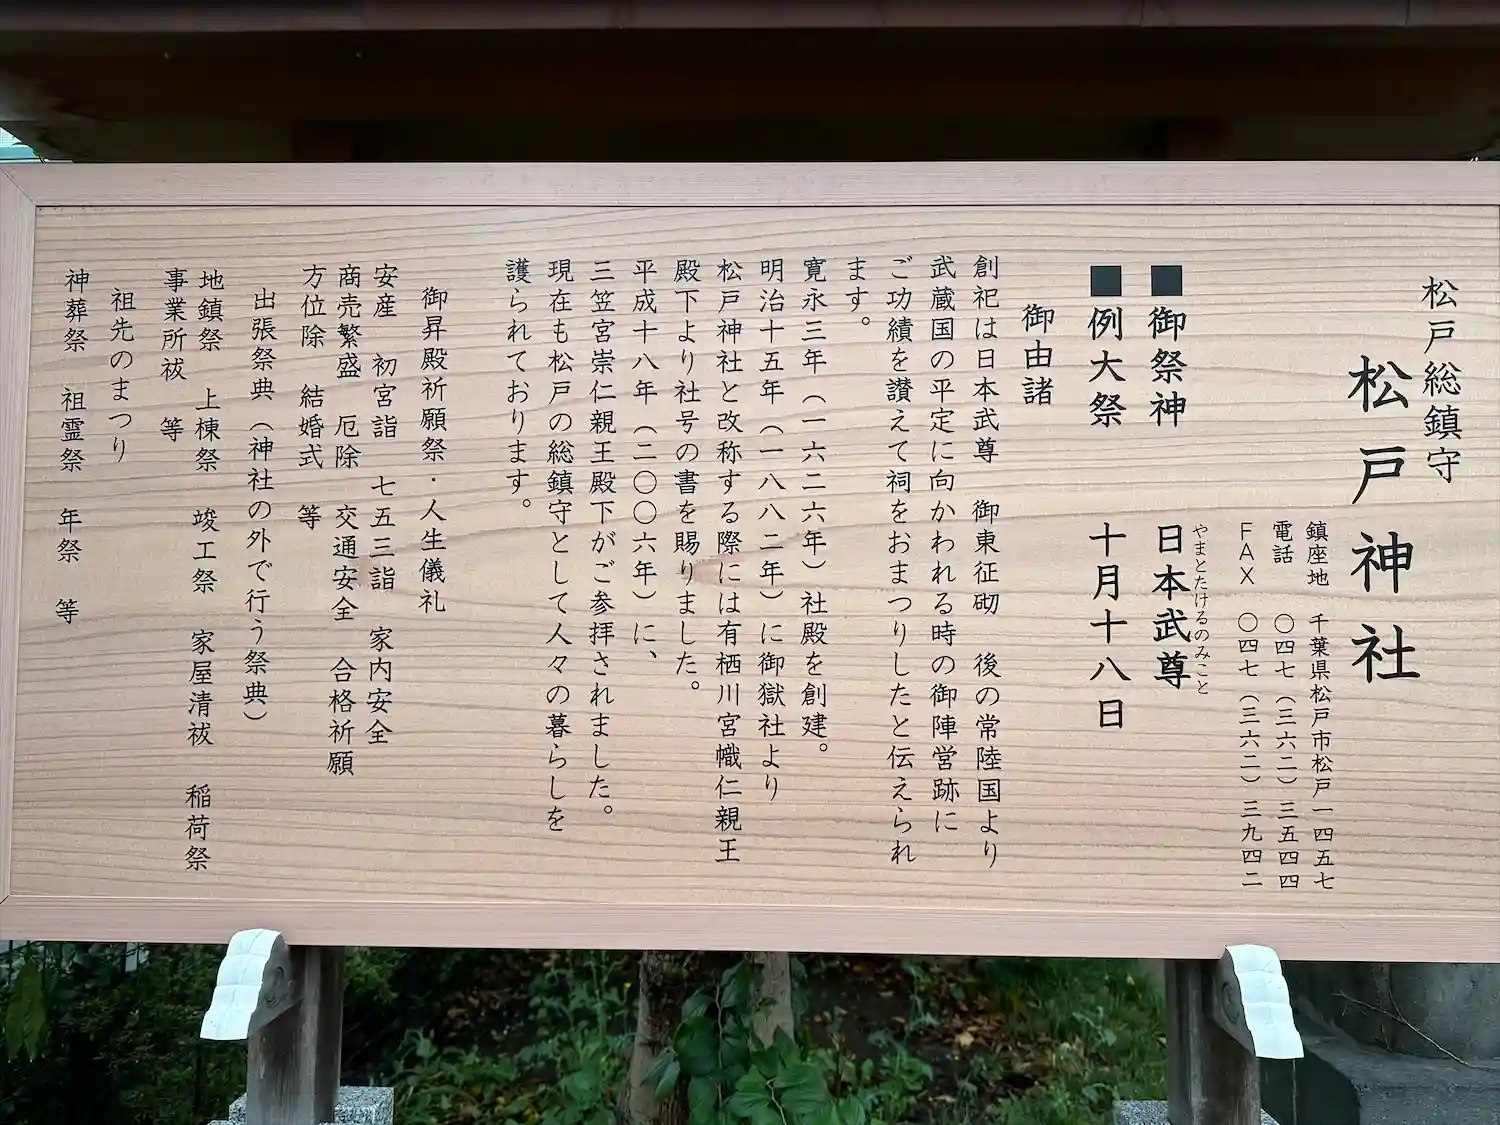 松戸総鎮守
松戸神社
鎮座地 千葉県松戸市松戸一四五七
電話 〇四七（三六二）三五四四
FAX 〇四七（三六二）三九四二
■御祭神 日本武尊
やまとたけるのみこと
■例大祭 十月十八日
御由諸
創祀は日本武尊 御東征砌 後の常陸国より
武蔵国の平定に向かわれる時の御陣営跡に
ご功績を讃えて祠をおまつりしたと伝えられ
ます。
寛永三年（一六二六年）社殿を創建。
明治十五年（一八八二年）に御嶽社より
松戸神社と改称する際には有栖川宮幟仁親王
殿下より社号の書を賜りました。
平成十八年（二〇〇六年）に、
三笠宮崇仁親王殿下がご参拝されました。
現在も松戸の総鎮守として人々の暮らしを
護られております。
御昇殿祈願祭・人生儀礼
安産 初宮詣 七五三詣 家内安全
商売繁盛 厄除 交通安全 合格祈願
方位除 結婚式 等
出張祭典（神社の外で行う祭典）
地鎮祭 上棟祭 竣工祭 家屋清祓 稲荷祭
事業所祓 等
祖先のまつり
神葬祭 祖霊祭 年祭 等